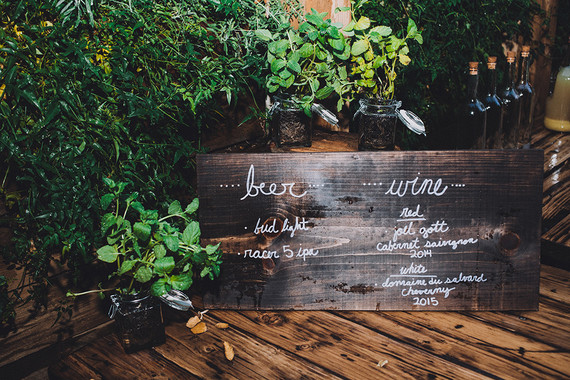 beer
· bud light
· racer 5 ipa
wine
red
joel gott
cabernet sauvignon
2014
white
· domaine du salvard
cheverny
2015